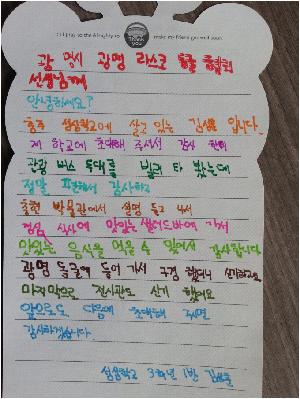 Thank you
광명시 광명 라스코
선생님께
안녕하세요?
충주 성심학교에 살고 있는 김성훈 입니다.
제 학교에 초대해 주셔서 감사 한데
관광 버스 두대를 빌려 타 봤는데
정말 편해서 감사하고
충현 박물관에서 설명 듣고 나서
점심 식사에 맛있는 샐러드바에 가서
맛있는 음식을 먹을 수 있어서 감사합니다
광명 동굴에 들어 가서 구경 했더니 신기하고요
마지막으로 전시관도 신기 했어요
앞으로도 다음에 초대해 주시면
감사하겠습니다.
성심학교 3학년 1반